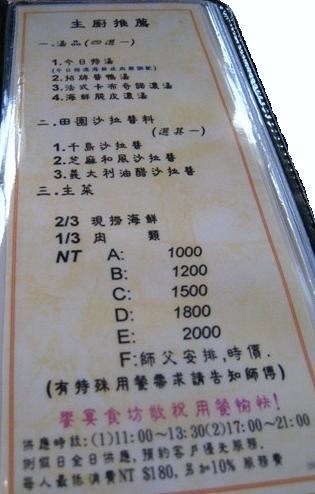 主廚推薦
一.湯品(四選一)
1.今日特湯
2.招牌醬鴨湯
3.法式卡布奇諾濃湯
4.海鮮脆皮濃湯
二.田園沙拉醬料
(選其一)
1.千島沙拉醬
2.芝麻和風沙拉醬
3.義大利油醋沙拉醬
三.主菜
2/3 現撈海鮮
1/3 肉 類
NT A: 1000
B: 1200
C: 1500
D: 1800
E: 2000
F:師父安排,時價.
(有特殊用餐需求請告知師傅)
饗宴食坊敬祝用餐愉快!
供應時段:(1)11:00~13:30(2)17:00~21:00
例假日全日供應,預約客戶優先服務.
每人最低消費NT $180,另加10% 服務費